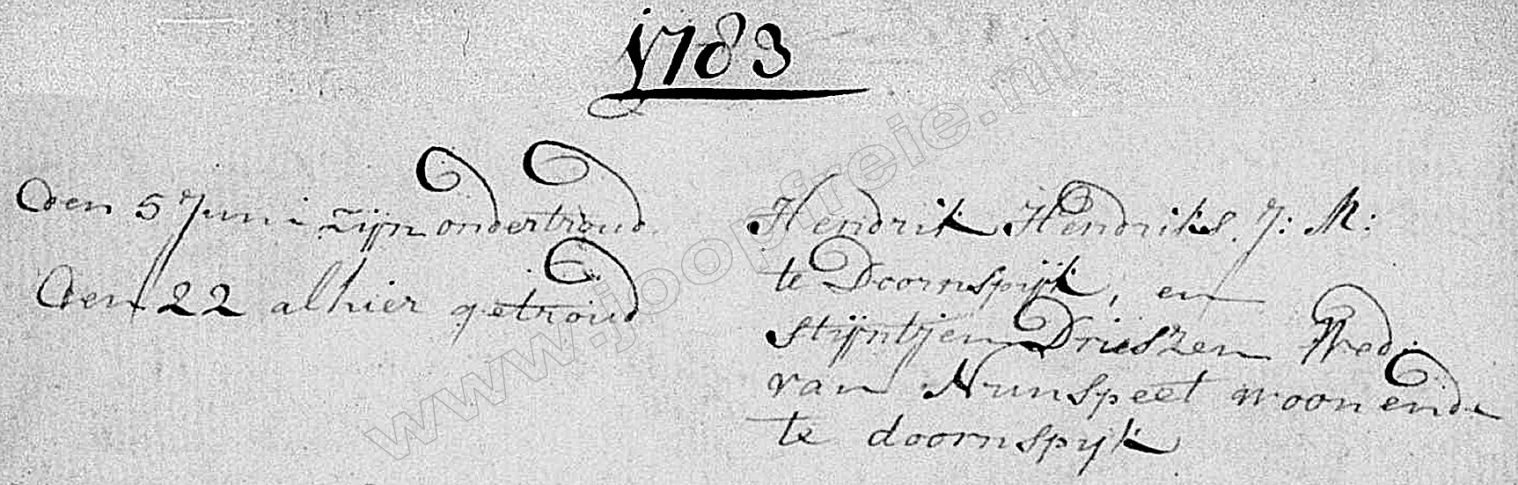 1783
Den 5 Juni zijn ondertroud.
Den 22 alhier getroud
Hendrik Hendriks. J: M:
te Doornspijk, en
Stijntjen Drieszen Wed:
van Nunspeet woonende
te doornspijk
www.joopfreie.nl